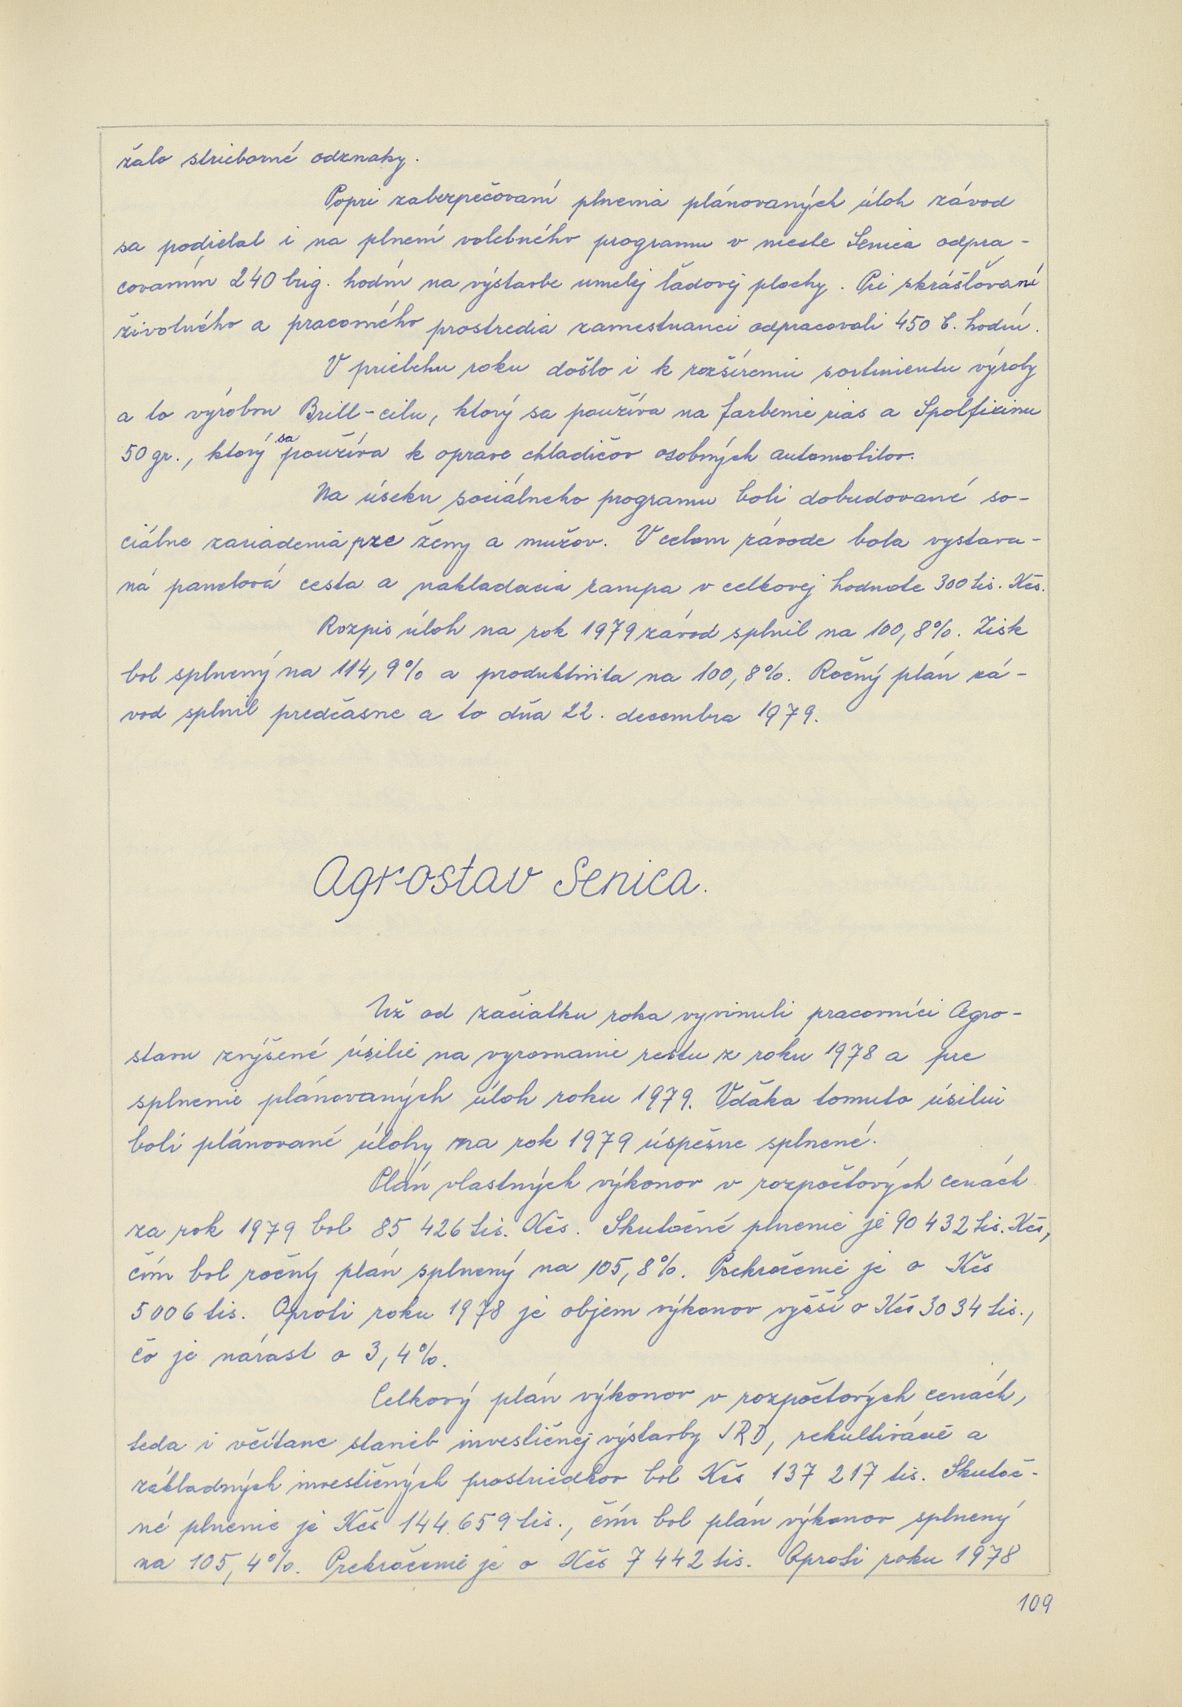 žalo strieborné odznaky.
Popri zabezpečovaní plnenia plánovaných úloh závod
sa podieľal i na plnení volebného programu v meste Senica odpra-
covaním 240 brig. hodín na výstavbe umelej ľadovej plochy. Pri skrášľovaní
životného a pracovného prostredia zamestnanci odpracovali 450 b. hodín.
V priebehu roku došlo i k rozšíreniu sortimentu výroby
a to výrobou Brill-cilu, ktorý sa používa na farbenie rias a Spolfixinu
50 gr., ktorý sa používa k oprave chladičov osobných automobilov.
Na úseku sociálneho programu boli dobudované so-
ciálne zariadenia pre ženy a mužov. V celom závode bola vystava-
ná panelová cesta a nakladacia rampa v celkovej hodnote 300 tis. Kčs.
Rozpis úloh na rok 1979 závod splnil na 100,8%. Zisk
bol splnený na 114,9% a produktivita na 100,8%. Ročný plán zá-
vod splnil predčasne a to dňa 22. decembra 1979.
Agrostav Senica.
Už od začiatku roka vyvinuli pracovníci Agro-
stavu zvýšené úsilie na vyrovnanie restu z roku 1978 a pre
splnenie plánovaných úloh roku 1979. Vďaka tomuto úsiliu
boli plánované úlohy na rok 1979 úspešne splnené.
Plán vlastných výkonov v rozpočtových cenách
za rok 1979 bol 85 426 tis. Kčs. Skutočné plnenie je 90 432 tis. Kčs,
čím bol ročný plán splnený na 105,8%. Prekročenie je o Kčs
5 006 tis. Oproti roku 1978 je objem výkonov vyšší o Kčs 3 034 tis.,
čo je nárast o 3,4%.
Celkový plán výkonov v rozpočtových cenách,
teda i včítane stavieb investičnej výstavby IRD, rekultivácie a
základných investičných prostriedkov bol Kčs 137 217 tis. Skutoč-
né plnenie je Kčs 144 659 tis., čím bol plán výkonov splnený
na 105,4%. Prekročenie je o Kčs 7 442 tis. Oproti roku 1978
109